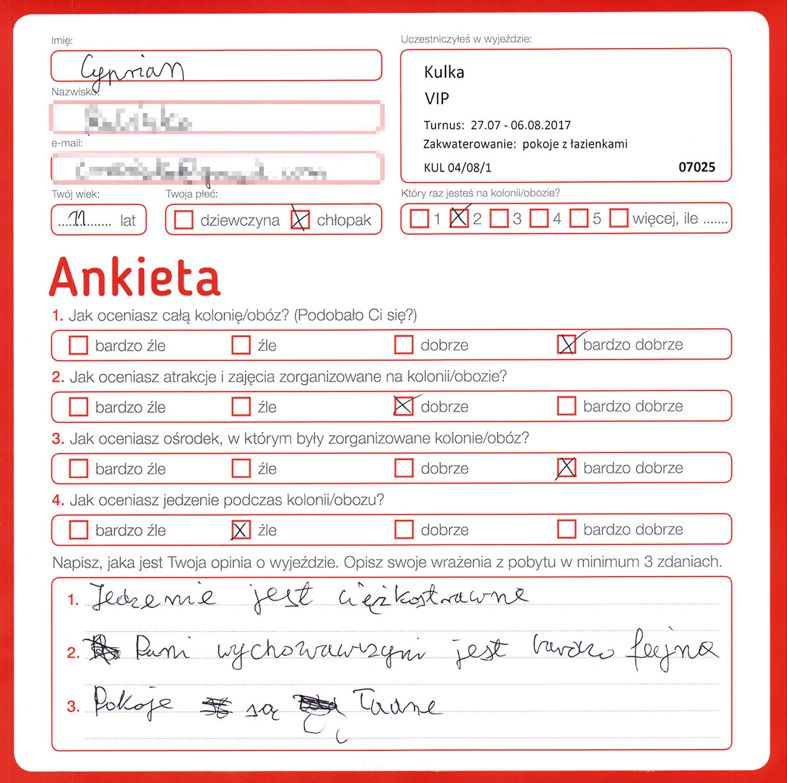 Imię:
Cyprian
Nazwisko:
e-mail:
Twój wiek:
Twoja płeć:
.....11....... lat
dziewczyna
chłopak
Uczestniczyłeś w wyjeździe:
Kulka
VIP
Turnus: 27.07 - 06.08.2017
Zakwaterowanie: pokoje z łazienkami
KUL 04/08/1 07025
Który raz jesteś na kolonii/obozie?
1 2 3 4 5 więcej, ile .......
Ankieta
1. Jak oceniasz całą kolonię/obóz? (Podobało Ci się?)
bardzo źle źle dobrze bardzo dobrze
2. Jak oceniasz atrakcje i zajęcia zorganizowane na kolonii/obozie?
bardzo źle źle dobrze bardzo dobrze
3. Jak oceniasz ośrodek, w którym były zorganizowane kolonie/obóz?
bardzo źle źle dobrze bardzo dobrze
4. Jak oceniasz jedzenie podczas kolonii/obozu?
bardzo źle źle dobrze bardzo dobrze
Napisz, jaka jest Twoja opinia o wyjeździe. Opisz swoje wrażenia z pobytu w minimum 3 zdaniach.
1. Jedzenie jest ciężkostrawne
2. Pani wychowawczyni jest bardzo fajna
3. Pokoje są Ładne